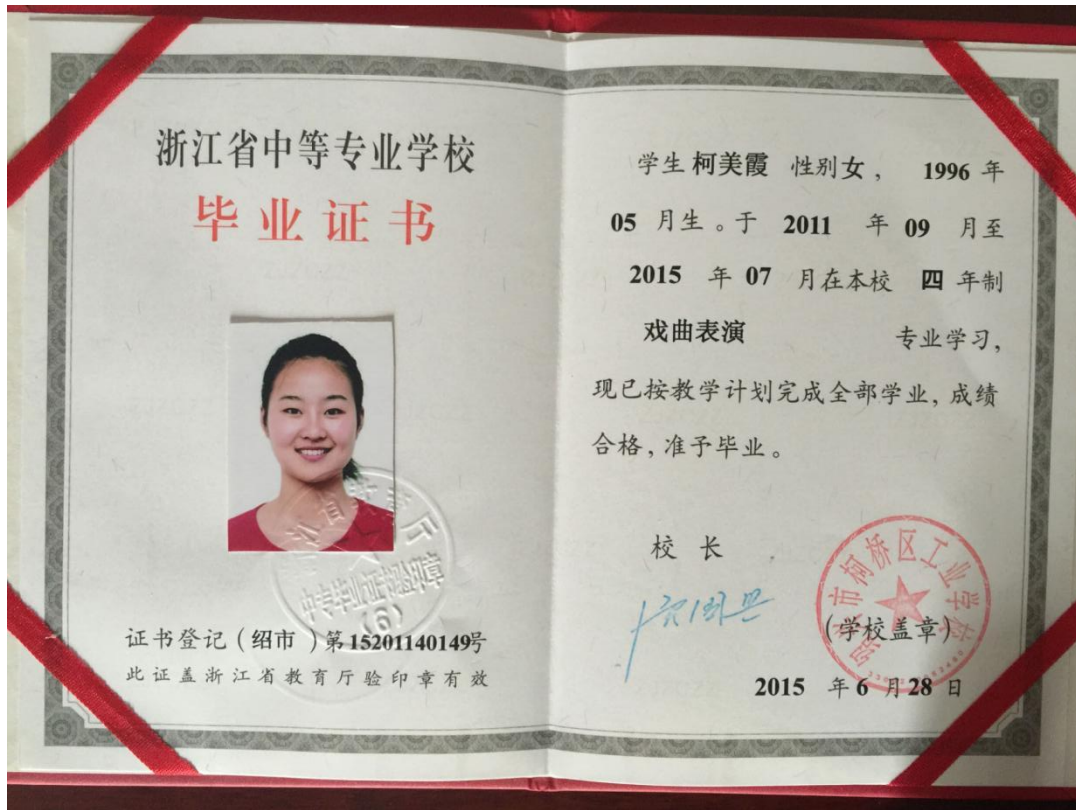 浙江省中等专业学校
毕业证书
证书登记(绍市)第15201140149号
此证盖浙江省教育厅验印章有效
学生 柯美霞 性别女, 1996 年
05 月生。于 2011 年 09 月至
2015 年 07 月在本校 四 年制
戏曲表演 专业学习,
现已按教学计划完成全部学业,成绩
合格,准予毕业。
校 长
市柯桥区工业学校
(学校盖章)
2015 年 6 月 28 日